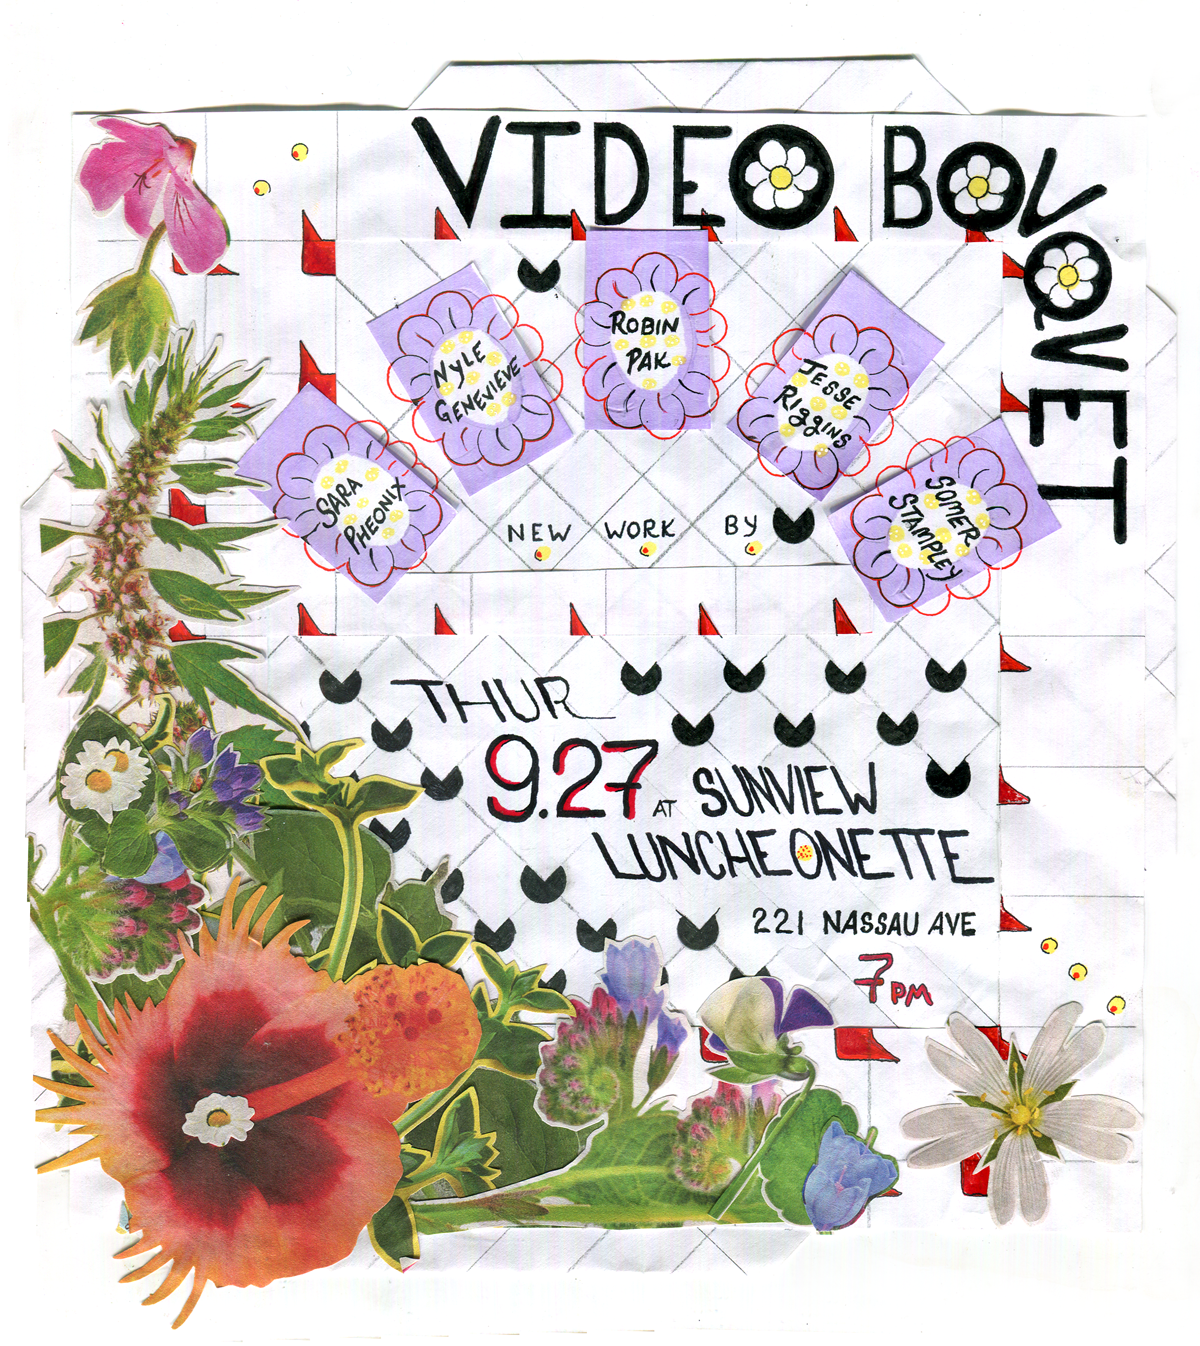 VIDEO BOUQUET
SARA
PHEONIX
NYLE
GENEVIEVE
ROBIN
PAK
JESSE
RIGGINS
SOMER
STAMPLEY
NEW WORK BY
THUR
9.27 AT SUNVIEW
LUNCHEONETTE
221 NASSAU AVE
7PM